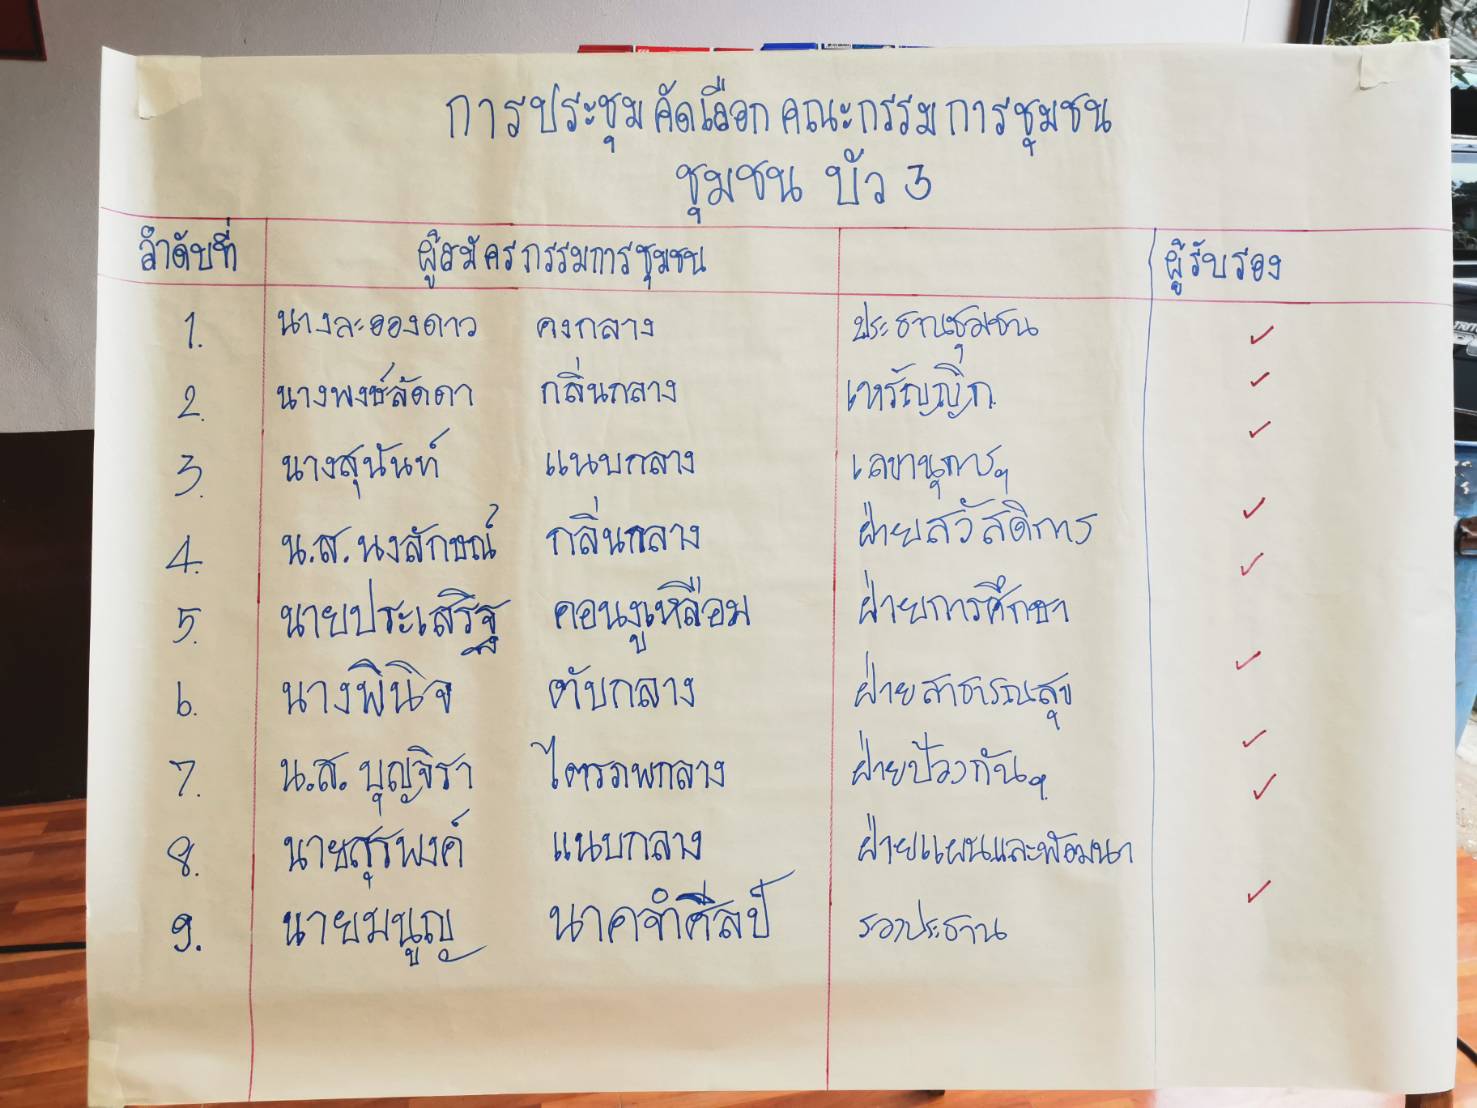 การประชุมคัดเลือกคณะกรรมการชุมชน
ชุมชน บัว 3
ลำดับที่ ผู้สมัครกรรมการชุมชน ผู้รับรอง
1. นางละอองดาว คงกลาง ประธานชุมชน ✓
2. นางพงษ์ลัดดา กลิ่นกลาง เหรัญญิก ✓
3. นางสุนันท์ แนบกลาง เลขานุการฯ ✓
4. น.ส.นงลักษณ์ กลิ่นกลาง ฝ่ายสวัสดิการ ✓
5. นายประเสริฐ คอนงูเหลือม ฝ่ายการศึกษา ✓
6. นางพินิจ ตับกลาง ฝ่ายสาธารณสุข ✓
7. น.ส. บุญจิรา ไตรภพกลาง ฝ่ายป้องกันฯ ✓
8. นายสุรพงค์ แนบกลาง ฝ่ายแผนและพัฒนา ✓
9. นายมนูญ นาคจำศิลป์ รองประธาน ✓